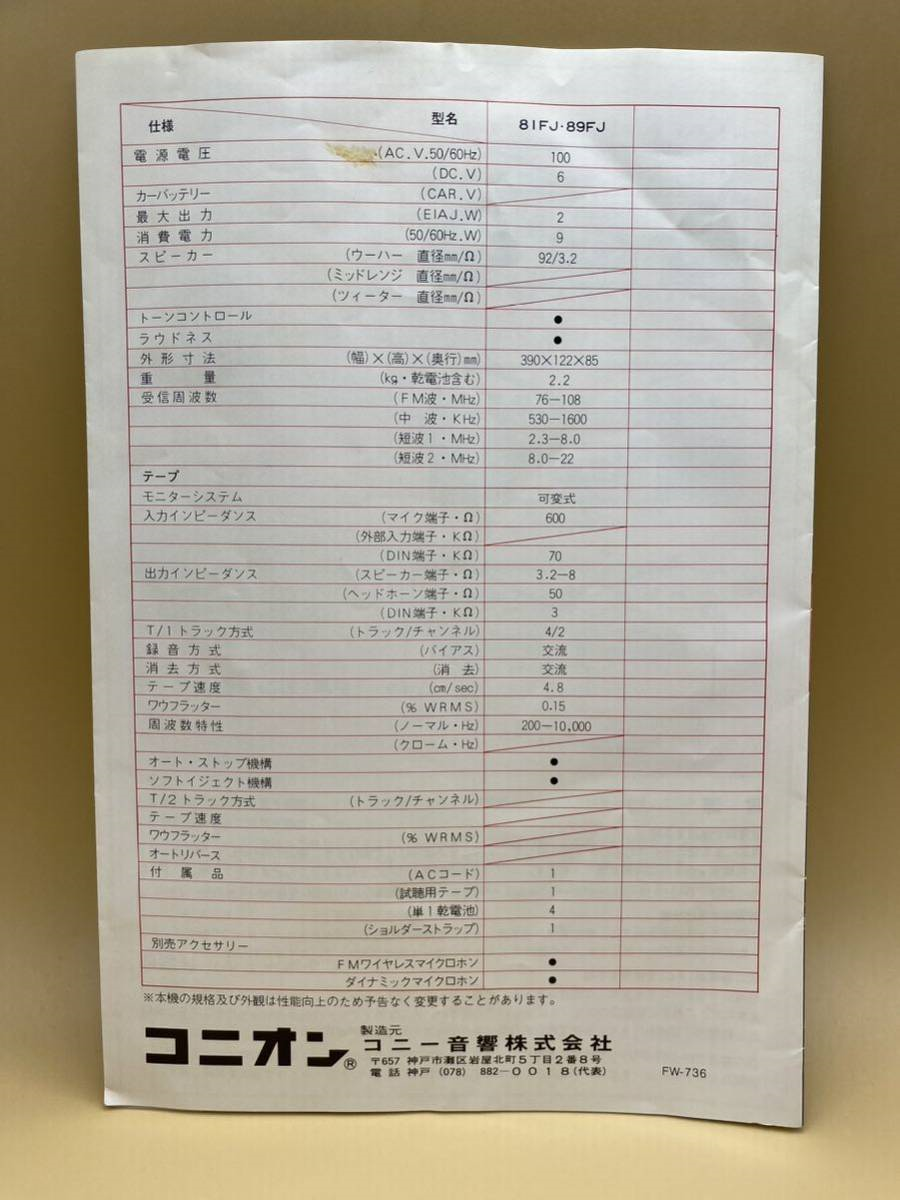 仕様 型名 81FJ・89FJ
電源電圧 (AC.V.50/60Hz) 100
(DC.V) 6
カーバッテリー (CAR.V)
最大出力 (EIAJ.W) 2
消費電力 (50/60Hz.W) 9
スピーカー (ウーハー 直径㎜/Ω) 92/3.2
(ミッドレンジ 直径㎜/Ω)
(ツィーター 直径㎜/Ω)
トーンコントロール ●
ラウドネス ●
外形寸法 (幅)×(高)×(奥行)㎜) 390×122×85
重量 (kg・乾電池含む) 2.2
受信周波数 (FM波・MHz) 76-108
(中波・KHz) 530-1600
(短波1・MHz) 2.3-8.0
(短波2・MHz) 8.0-22
テープ
モニターシステム 可変式
入力インピーダンス (マイク端子・Ω) 600
(外部入力端子・KΩ)
(DIN端子・KΩ) 70
出力インピーダンス (スピーカー端子・Ω) 3.2-8
(ヘッドホーン端子・Ω) 50
(DIN端子・KΩ) 3
T/1トラック方式 (トラック/チャンネル) 4/2
録音方式 (バイアス) 交流
消去方式 (消去) 交流
テープ速度 (㎝/sec) 4.8
ワウフラッター (% WRMS) 0.15
周波数特性 (ノーマル・Hz) 200-10,000
(クローム・Hz)
オート・ストップ機構 ●
ソフトイジェクト機構 ●
T/2トラック方式 (トラック/チャンネル)
テープ速度
ワウフラッター (% WRMS)
オートリバース
付属品 (ACコード) 1
(試聴用テープ) 1
(単1乾電池) 4
(ショルダーストラップ) 1
別売アクセサリー
FMワイヤレスマイクロホン ●
ダイナミックマイクロホン ●
※本機の規格及び外観は性能向上のため予告なく変更することがあります。
コニオン® 製造元 コニー音響株式会社
〒657 神戸市灘区岩屋北町5丁目2番8号
電話 神戸 (078) 882-0018(代表) FW-736